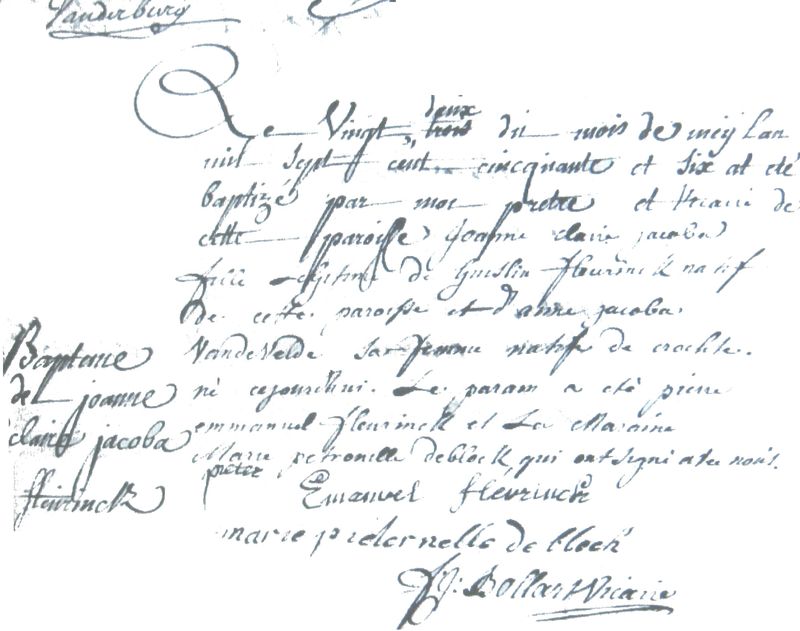 Vanderburg
Le Vingt deux trois du mois de mey lan
mil sept cent cincquante et six at eté
baptizé par moi pretre et vicaire de
cette paroisse joanne claire jacoba
fille Legitime de Guislin fleurinck natif
de cette paroisse et d'anne jacoba
Vandevelde sa femme natif de crochte.
né cejourdhui. Le parain a eté pierre
emmanuel fleurinck et La Maraine
Marie petronelle deblock, qui ont signé avec nous.
Bapteme
de joanne
claire jacoba
fleurinck
pieter Emanuel fleurinck
marie pieternelle de block
J. Bollart Vicaire